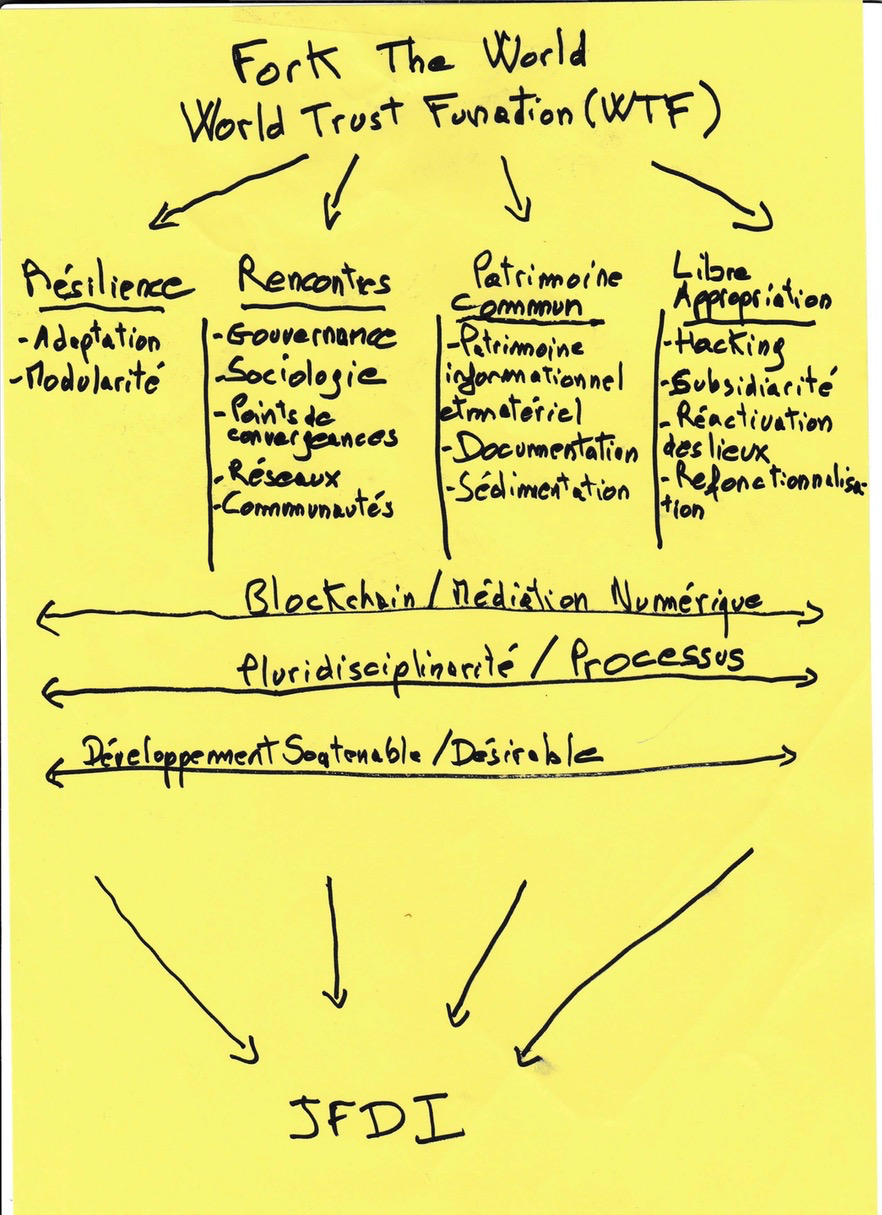 Fork The World
World Trust Funation (WTF)
Résilience
- Adaptation
- Modularité
Rencontres
- Gouvernance
- Sociologie
- Points de
convergeances
- Réseaux
- Communautés
Patrimoine
Commun
- Patrimoine
informationnel
et matériel
- Documentation
- Sédimentation
Libre
Appropriation
- Hacking
- Subsidiarité
- Réactivation
des lieux
- Refonctionnalisa-
tion
Blockchain / Médiation Numérique
Pluridisciplinarité / Processus
Développement Soutenable / Désirable
JFDI